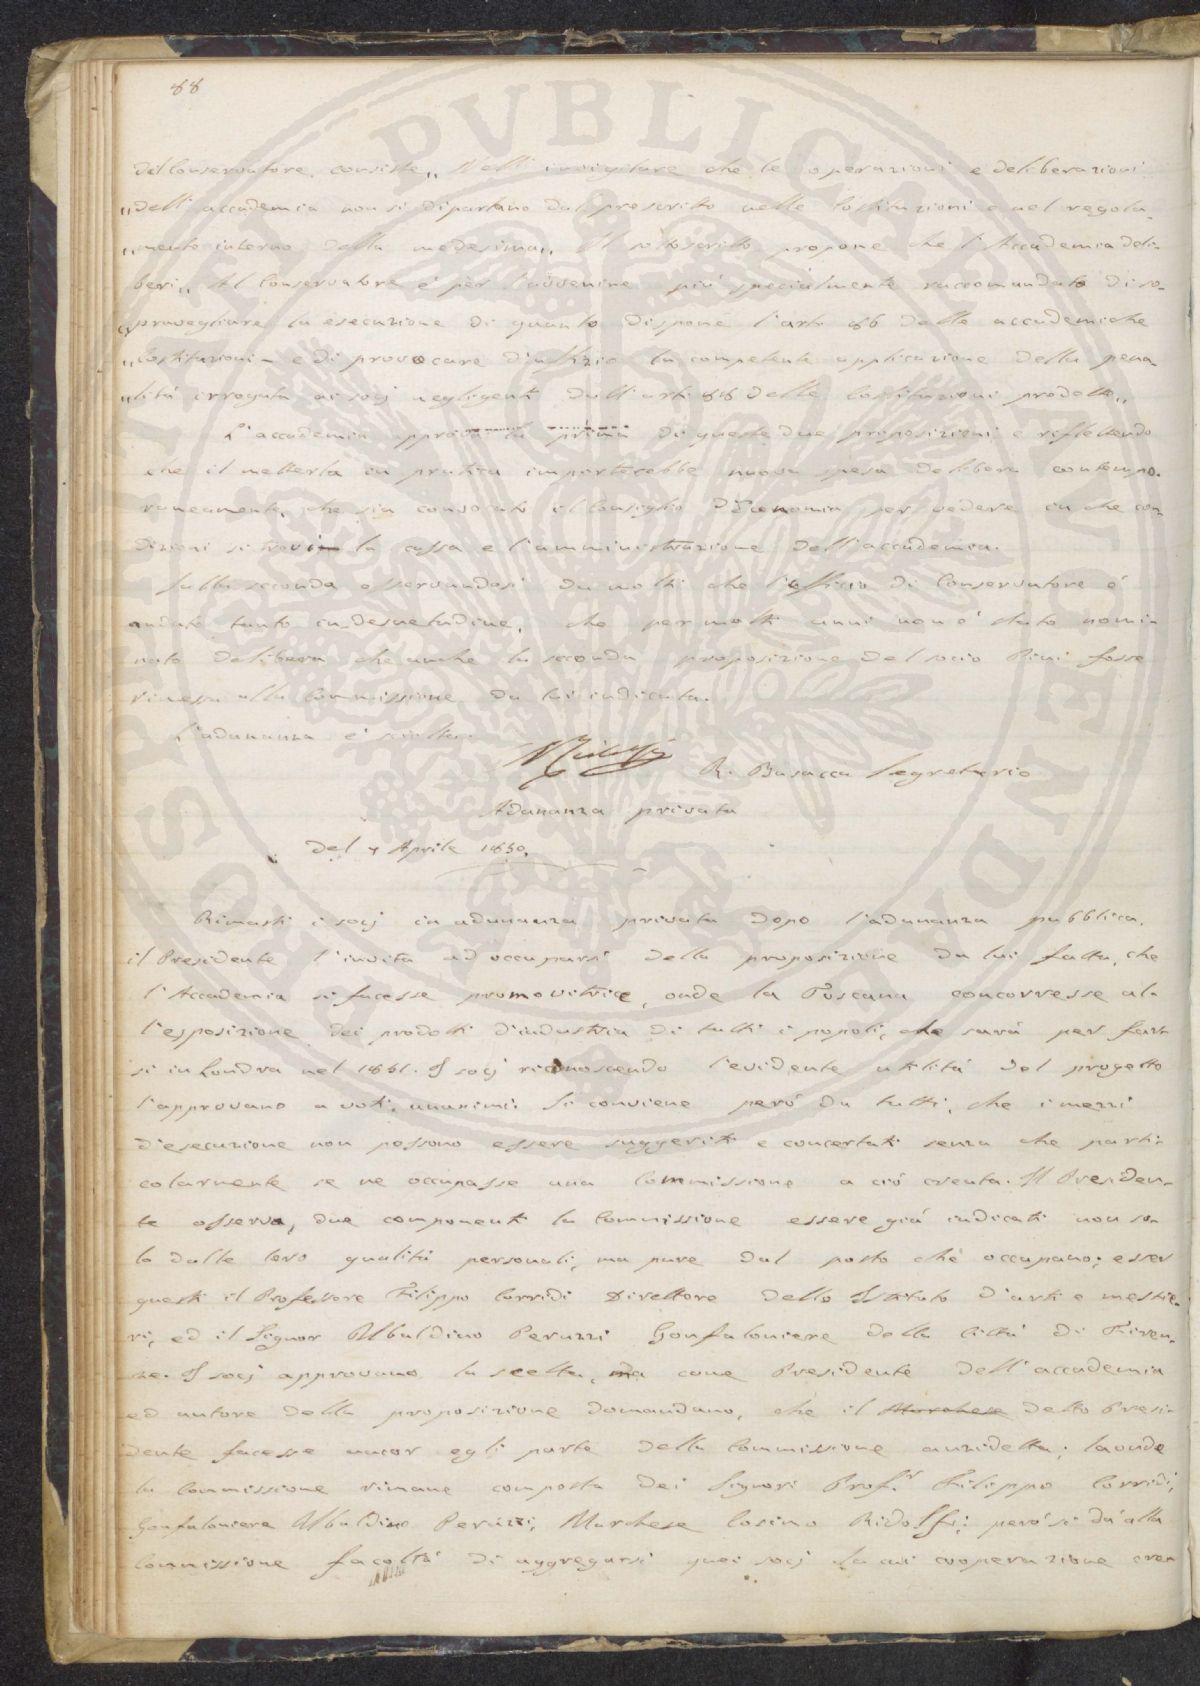 88
del Conservatore, consiste „ Nell' invigilare che le operazioni e deliberazioni
„ dell' accademia non si dipartano dal prescritto nelle Costituzioni e nel regola-
„ mento interno della medesima „ Il sottoscritto propone che l'Accademia deli-
beri „ Al Conservatore è per l'avvenire più specialmente raccomandato di so-
„ pravegliare la esecuzione di quanto dispone l'art. 86 delle accademiche
„ Costituzioni - e di provocare d'uffizio la competente applicazione della pena-
„ lità irrogata ai socj negligenti dall' art. 88 delle Costituzioni predette „
L'accademia approva la prima di queste due proposizioni e riflettendo
che il metterla in pratica importerebbe nuova spesa delibera contempo-
raneamente, che sia convocato il Consiglio d'Economia per vedere in che con-
dizioni si trovi la cassa e l'amministrazione dell'accademia.
Sulla seconda osservandosi da molti che l'Officio di Conservatore è
andato tanto in desuetudine, che per molti anni non è stato nomi-
nato delibera che anche la seconda proposizione del socio Pini fosse
rimessa alla Commissione da lui indicata.
L'adunanza è sciolta.
R. Busacca Segretario
Adunanza privata
del 7 Aprile 1850.
Rimasti i socj in adunanza privata dopo l'adunanza pubblica,
il Presidente l'invita ad occuparsi della proposizione da lui fatta, che
l'Accademia si facesse promovitrice, onde la Toscana concorresse al-
l'esposizione dei prodotti d'industria di tutti i popoli, che sarà per far-
si in Londra nel 1851. I socj riconoscendo l'evidente utilità del progetto
l'approvano a voti unanimi. Si conviene però da tutti, che i mezzi
d'esecuzione non possono essere suggeriti e concertati senza che parti-
colarmente se ne occupasse una Commissione a ciò creata. Il Presiden-
te osserva, due componenti la Commissione essere già indicati non so-
lo dalle loro qualità personali, ma pure dal posto che occupano; esser
questi il Professore Filippo Corridi Direttore dello Istituto d'arti e mestie-
ri, ed il Signor Ubaldino Peruzzi Gonfaloniere della Città di Firen-
ze. I socj approvano la scelta, ma come Presidente dell'accademia
ed autore della proposizione domandano, che il Marchese detto Presi-
dente facesse ancor egli parte della Commissione anzidetta; laonde
la Commissione rimane composta dei Signori Prof.r Filippo Corridi,
Gonfaloniere Ubaldino Peruzzi, Marchese Cosimo Ridolfi; però si dà alla
Commissione facoltà di aggregarsi quei socj la cui cooperazione cren